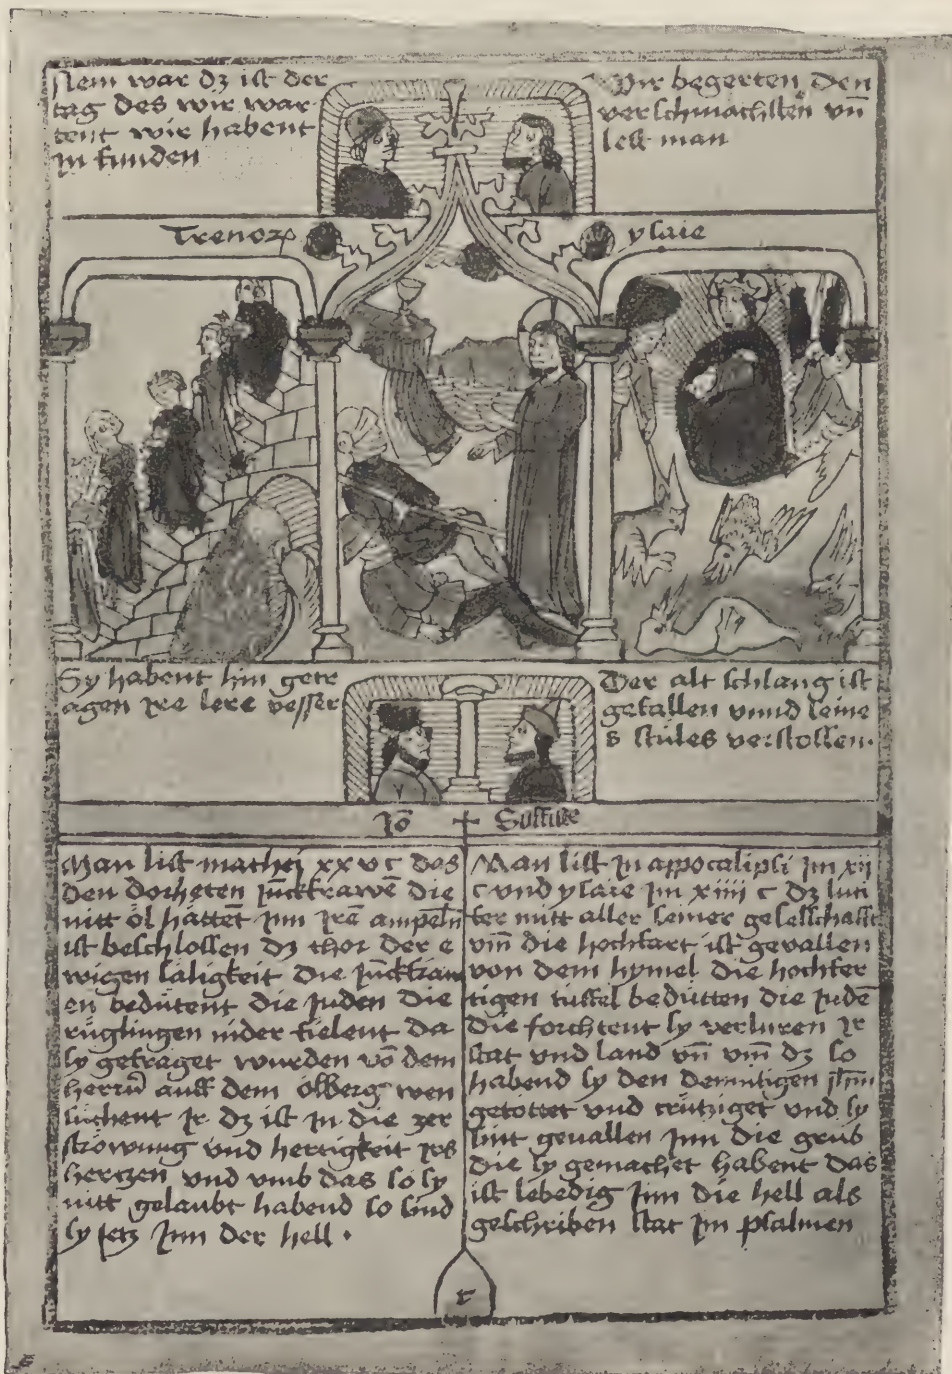 Nem war dz ist der
tag des wir war
tent wir habent
In funden
Wir begerten den
verschmachsten vn̄
lest man
Trenorꝝ
ysaie
Sy habent him getr
agen Ire lere vesser
Der alt schlang ist
gefallen vnnd seine
s stules verstossen.
Man list mathei xxv c das
den dorheten Juckfrawē die
nitt öl hattēt Inn Irē ampeln
ist beschlossen dz thor der e
wigen säligkeit die Juckfraw
en bedütent die Juden die
rügglingen nider fielent da
sy gefraget wurden vō dem
herrn̄ auff dem ölberg wen
suchent Ir dz ist In die zer
ströwung vnd hertigkeit Irs
hertzen vnd vmb das so sy
nitt gelaubt habend so sind
sy Jetz Inn der hell .
Man list In appocalipsi Im xij
c vnd ysaie Im xiiii c dz luci
fer mitt aller seiner geselschafft
vm̄ die hochfart ist gevallen
von dem hymel die hochfer
tigen tüffel bedütten die Judē
die forchtent sy verluren Ir
stat vnd land vn̄ vm̄ dz so
habend sy den demütigen Jhm̄
getöttet vnd crütziget vnd sy
sint gevallen Inn die grub
die sy gemachet habent das
ist lebedig Inn die hell als
geschriben stat Im psalmen
r